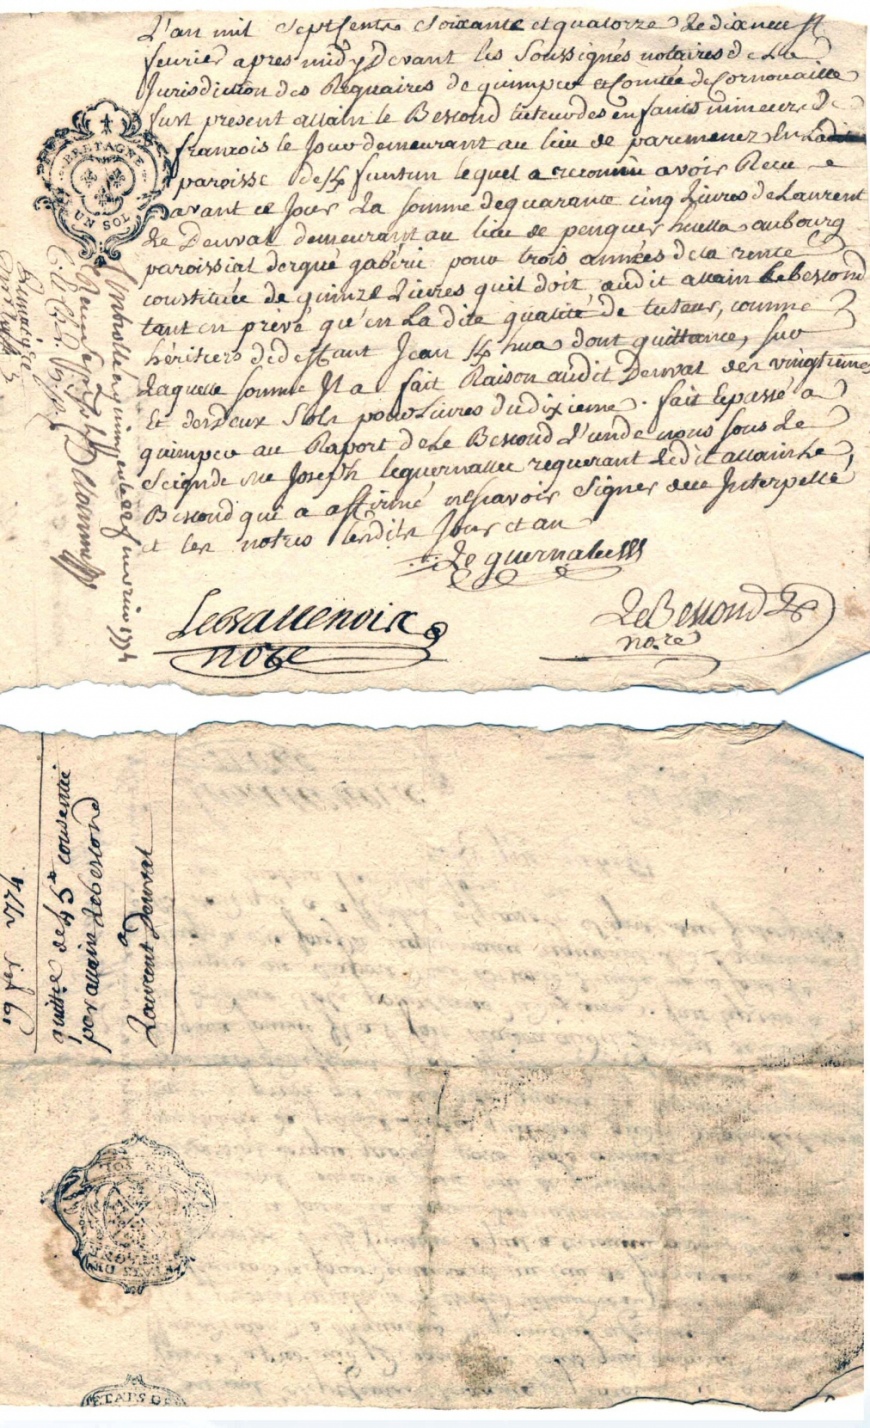 L'an mil sept Cents Soixante et quatorze Le dix neuff
fevrier apres midy devant les Soussignés notaires de la
Jurisdiction des Reguaires de quimper et Comtée de Cornouaille
fust present allain le Bescond tuteur des enfants mineurs de
francois le Jour demeurant au lieu de parcmenez En Ladite
paroisse lequel a reconnu avoir Receu
avant ce Jour La somme de quarante cinq Livres de Laurent
Le Denval demeurant au lieu de penquer huella au bourg
paroissial dergué gabéric pour trois années de la rente
constituée de quinze Livres quil doit audit allain Lebescond
tant en privé qu'en La dite qualité de tuteur, comme
héritiers de deffant Jean dont quittance, sur
Laquelle somme Il a fait Raison audit Denval des vingtiemes
Et des deux Sols pour Livres du dixieme. fait Et passé a
quimper au Raport de Le Bescond L'un de nous sous Le
Seign de me Joseph Leguernallec requerant Ledit allain Le
Bescond qui a affirmé ne scavoir Signer de ce Interpellé
et les notres lesdits Jour et an
Le guernallec
Le Bescond
nore
nore
BRETAGNE
UN SOL
Controllé a quimper le 22 fevrier 1774
19 fev 1774
quittce de 45 consentie
par allain Lebescond
a
Laurent Denval
ETATS DE